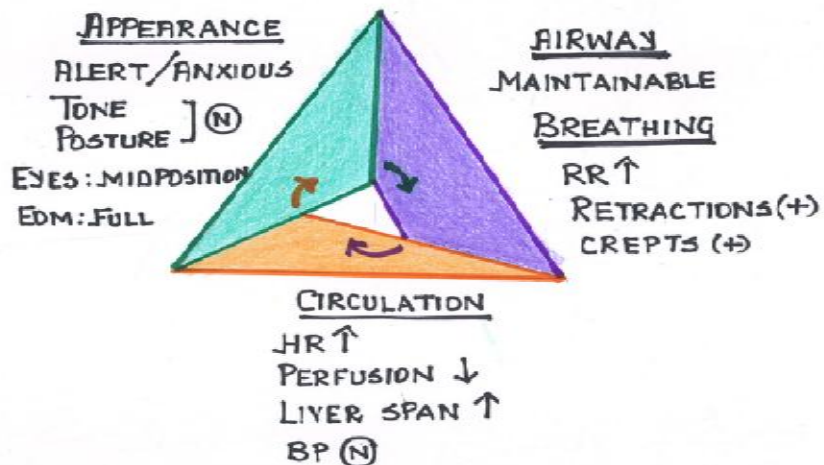 APPEARANCE
ALERT/ANXIOUS
TONE
POSTURE ] Ⓝ
EYES: MIDPOSITION
EOM: FULL
AIRWAY
MAINTAINABLE
BREATHING
RR ↑
RETRACTIONS (+)
CREPTS (+)
CIRCULATION
HR ↑
PERFUSION ↓
LIVER SPAN ↑
BP Ⓝ